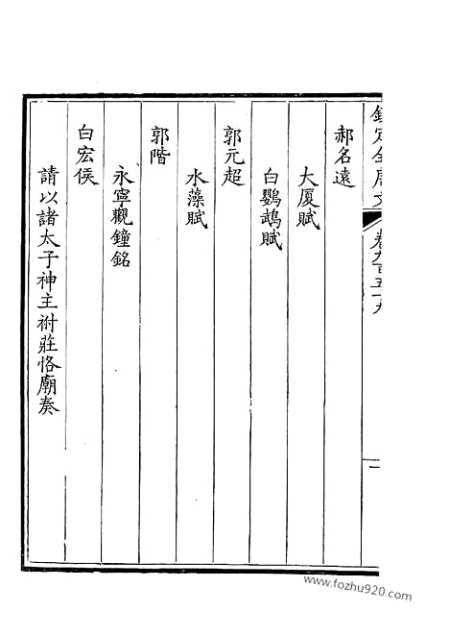 欽定全唐文
卷九百五十九
一
郝名遠
大厦賦
白鸚鵡賦
郭元超
水藻賦
郭階
永寧觀鐘銘
白宏俟
請以諸太子神主祔莊恪廟奏
www.fozhu920.com